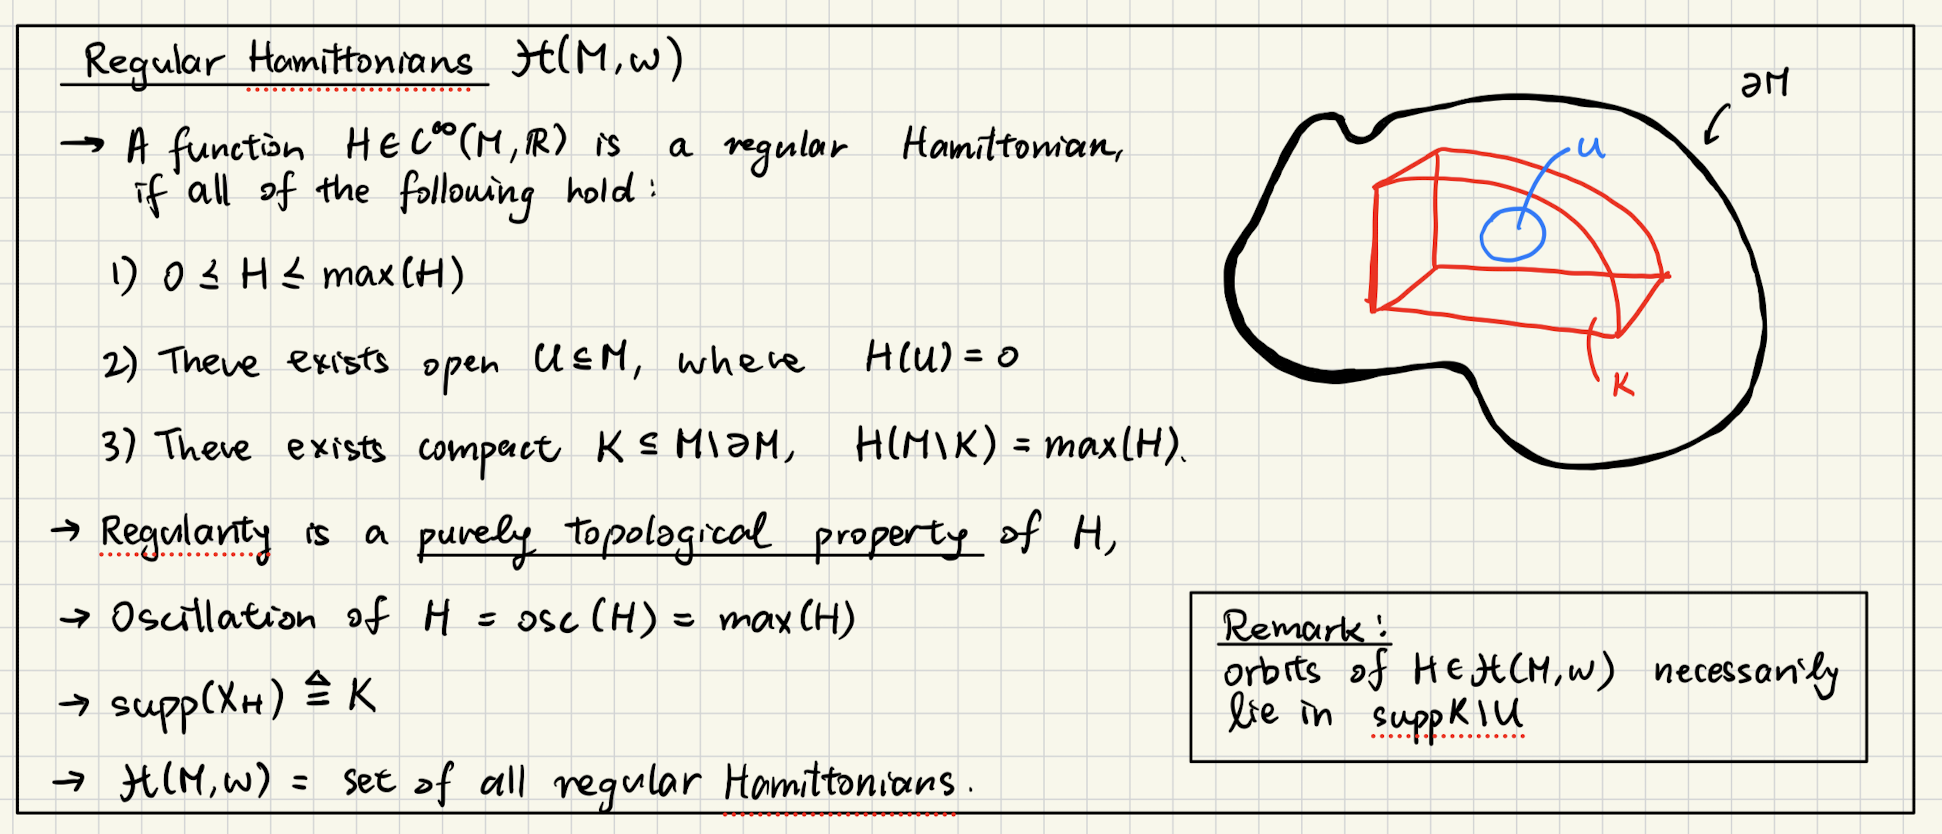 Regular Hamiltonians ℋ(M,ω)
→ A function H ∈ C^∞(M,ℝ) is a regular Hamiltonian,
if all of the following hold:
1) 0 ≤ H ≤ max(H)
2) There exists open U ⊆ M, where H(U) = 0
3) There exists compact K ⊆ M\∂M, H(M\K) = max(H).
→ Regularity is a purely topological property of H,
→ Oscillation of H = osc(H) = max(H)
→ supp(X_H) ≙ K
→ ℋ(M,ω) = set of all regular Hamiltonians.
∂M
U
K
Remark:
orbits of H ∈ ℋ(M,ω) necessarily
lie in supp K\U